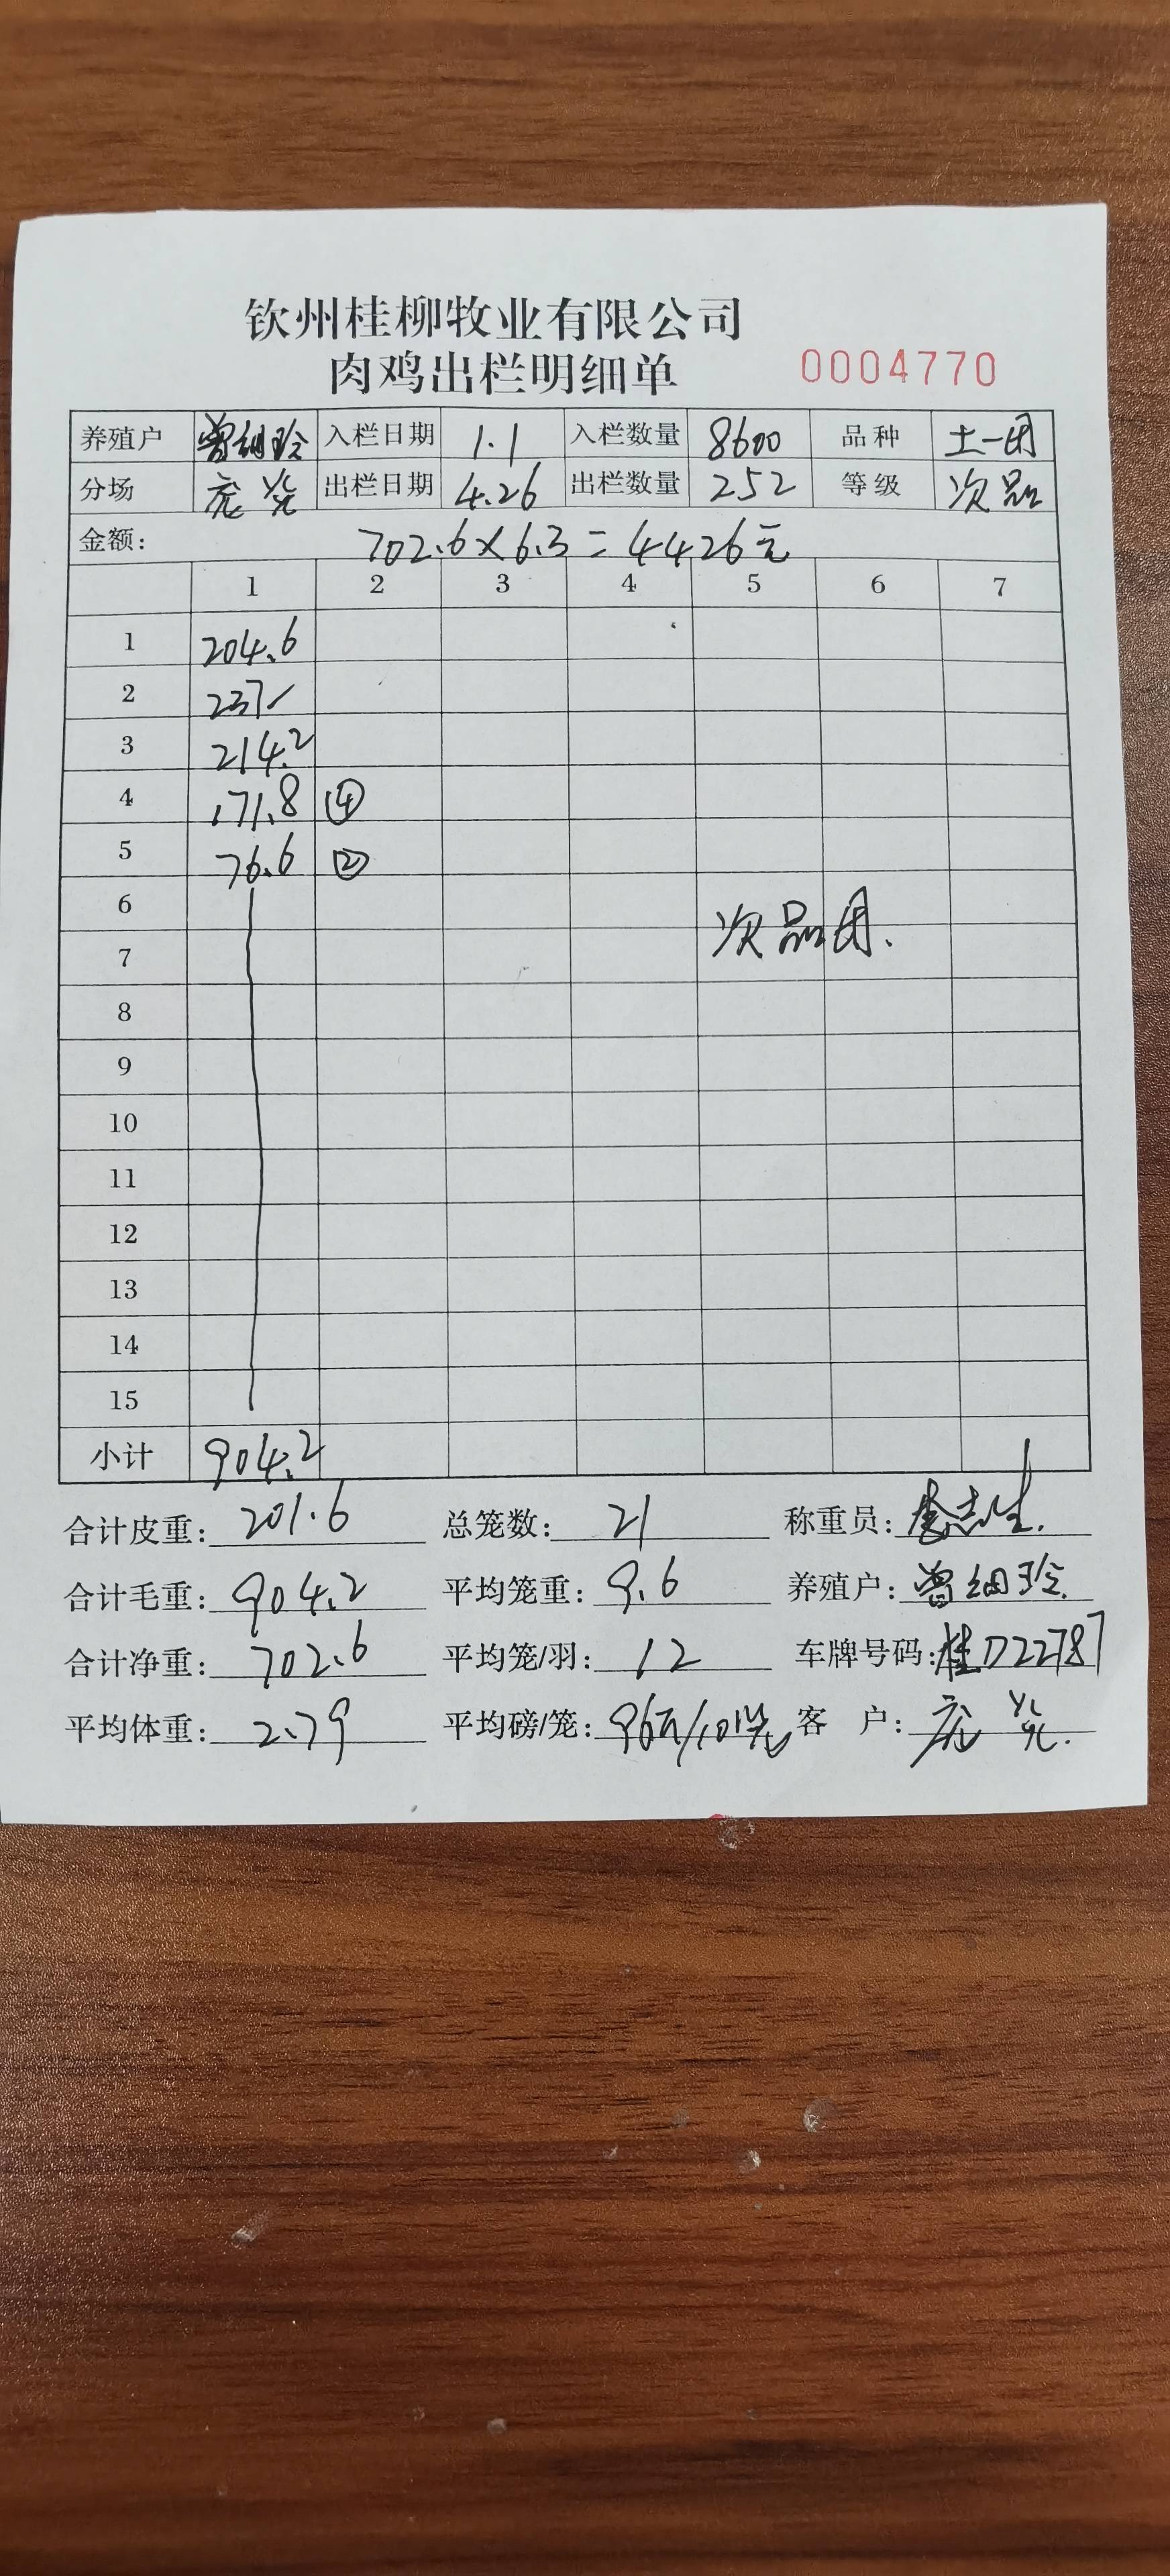 钦州桂柳牧业有限公司
肉鸡出栏明细单 0004770
养殖户 曾细玲 入栏日期 1.1 入栏数量 8600 品种 土一团
分场 出栏日期 4.26 出栏数量 252 等级 次品
金额: 702.6×6.3=4426元
1 2 3 4 5 6 7
1 204.6
2 237
3 214.2
4 171.8 ④
5 76.6 ②
6
次品团.
7
8
9
10
11
12
13
14
15
小计 904.2
合计皮重: 201.6 总笼数: 21 称重员:
合计毛重: 904.2 平均笼重: 9.6 养殖户: 曾细玲
合计净重: 702.6 平均笼/羽: 12 车牌号码: 桂D22787
平均体重: 2.79 平均磅/笼: 客 户: